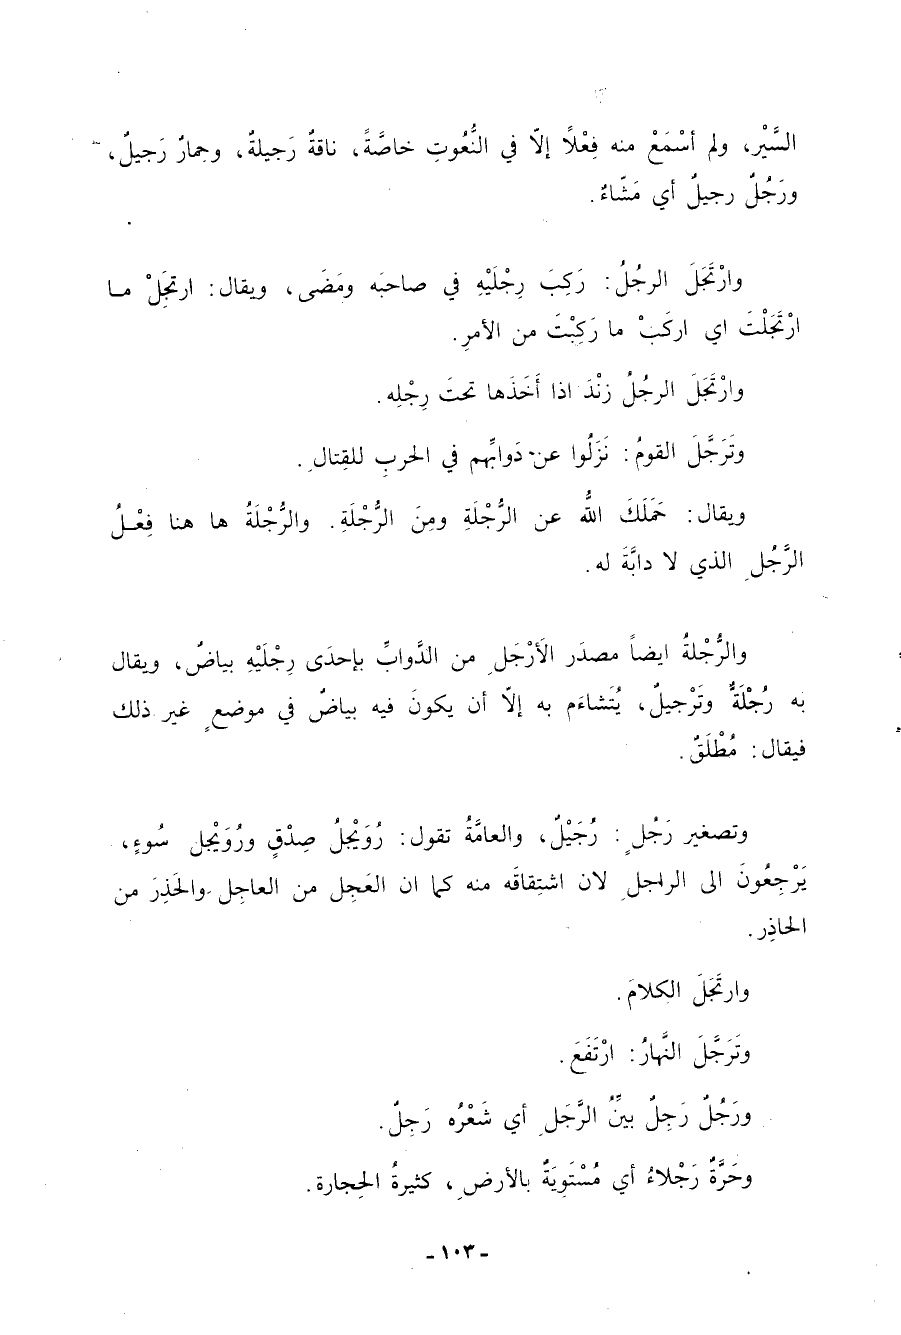 السَّيْر، ولم أسْمَعْ منه فِعْلاً إلاّ في النُّعُوتِ خاصَّةً، ناقةٌ رَجيلةٌ، وحِمارٌ رَجيلٌ،
ورَجُلٌ رجيلٌ أي مَشّاءٌ.
وارْتَجَلَ الرجُلُ: رَكِبَ رِجْلَيْهِ في صاحبَه ومَضَى، ويقال: ارتجِلْ ما
ارْتَجَلْتَ اي اركَبْ ما رَكِبْتَ من الأمرِ.
وارْتَجَلَ الرجُلُ زنْدَ اذا أَخَذَها تحتَ رِجْلِه.
وتَرَجَّلَ القومُ: نَزَلُوا عن دَوابِّهم في الحربِ للقِتالِ.
ويقال: حَمَلَكَ اللّٰه عن الرُّجْلَةِ ومِنَ الرُّجْلَةِ. والرُّجْلَةُ ها هنا فِعْلُ
الرَّجُلِ الذي لا دابَّةَ له.
والرُّجْلةُ ايضاً مصدَر الأَرْجَلِ من الدَّوابِّ بإحدَى رِجْلَيْهِ بياضٌ، ويقال
به رُجْلَةٌ وتَرْجيلٌ، يُتَشاءَم به إلاّ أن يكونَ فيه بياضٌ في موضعٍ غير ذلك
فيقال: مُطْلَقٌ.
وتصغير رَجُلٍ: رُجَيْلٌ، والعامَّةُ تقول: رُوَيْجلُ صِدْقٍ ورُوَيْجل سُوءٍ،
يَرْجِعُونَ الى الراجلِ لان اشتِقاقَه منه كما ان العَجِل من العاجِل والحَذِرَ من
الحاذِر.
وارتَجَلَ الكلامَ.
وتَرَجَّلَ النَّهارُ: ارْتَفَعَ.
ورَجُلٌ رَجِلٌ بينِّ الرَّجَلِ أي شَعْرُه رَجِلٌ.
وحَرَّةٌ رَجْلاءُ أي مُسْتَوِيَةٌ بالأرضِ، كثيرةُ الحِجارة.
- ١٠٣ -